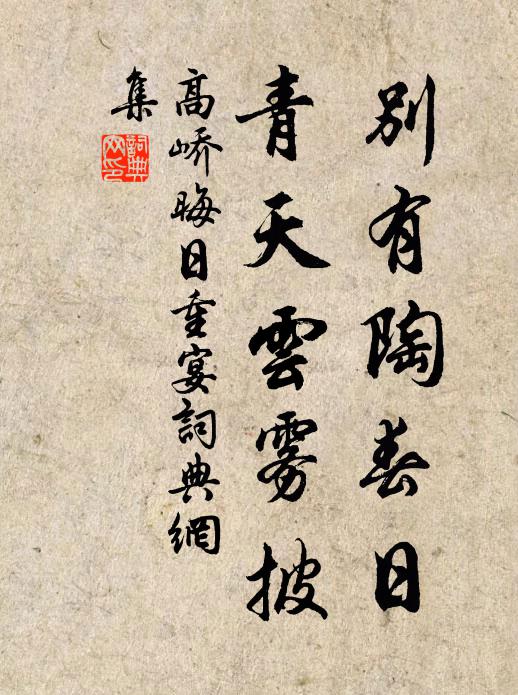 別有陶春日
青天雲霧披
高嶠晦日重宴詞典網
集
詞典
網印